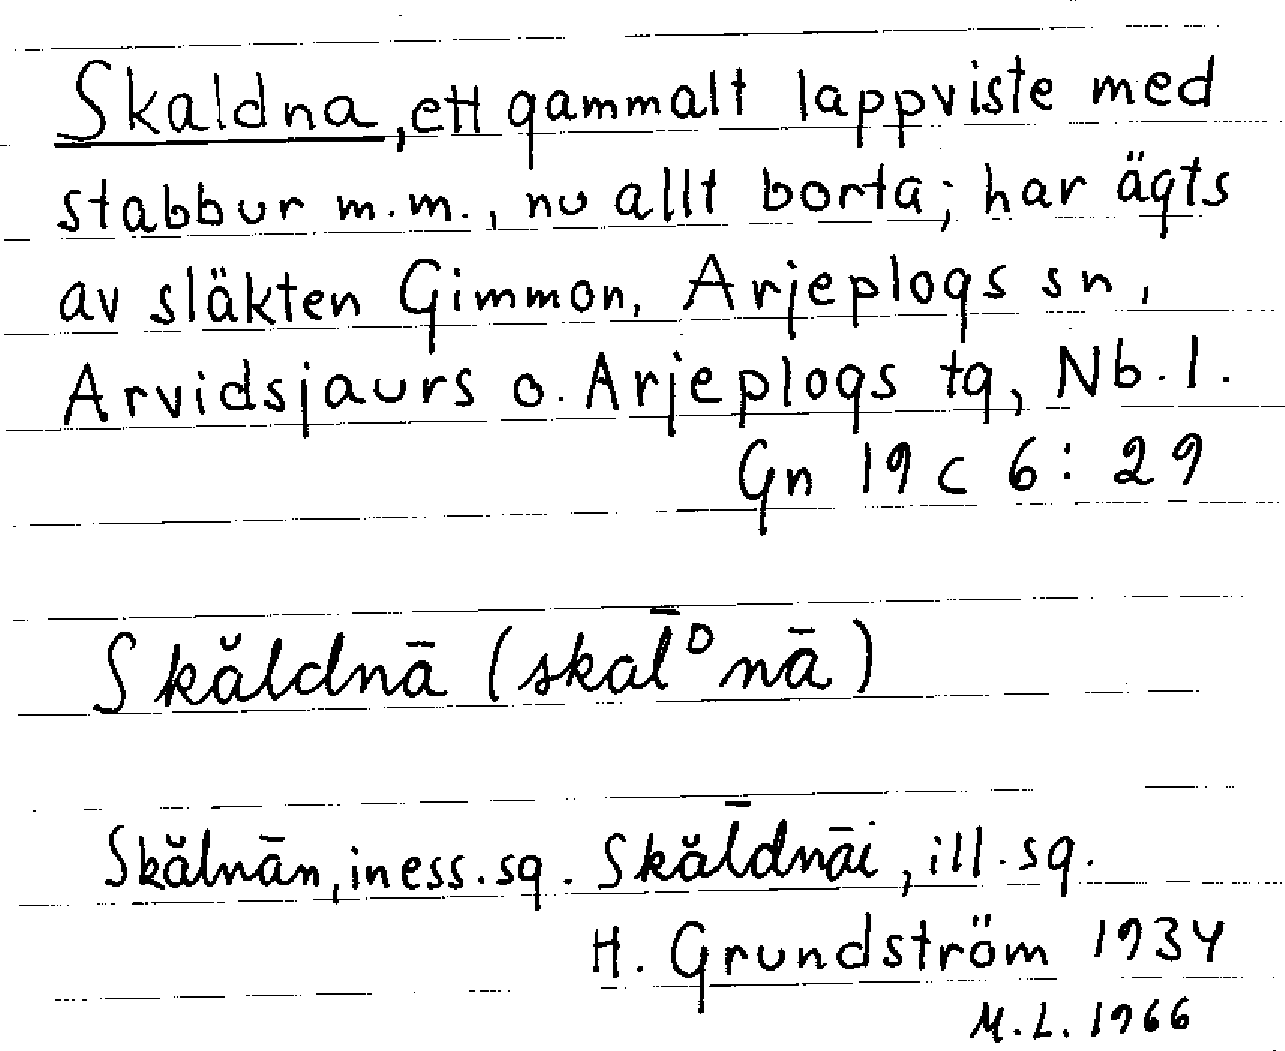 Skaldna, ett gammalt lappviste med
stabbur m.m., nu allt borta; har ägts
av släkten Gimmon, Arjeplogs sn,
Arvidsjaurs o. Arjeplogs tg, Nb. l.
Gn 19 c 6: 29
Skăldnā (skal̄ᴰnā)
Skălnān, iness. sg. Skăl̄dnāi, ill. sg.
H. Grundström 1934
M. L. 1966